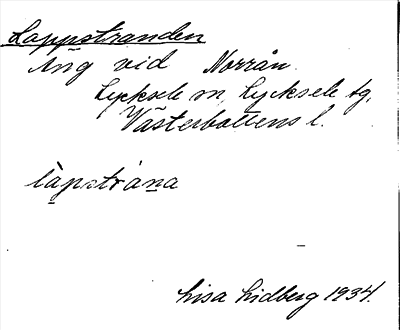 Lappstranden
Äng vid Norrån.
Lycksele sn, Lycksele tg,
Västerbottens l.
làpstrána
Lisa Lidberg 1934.